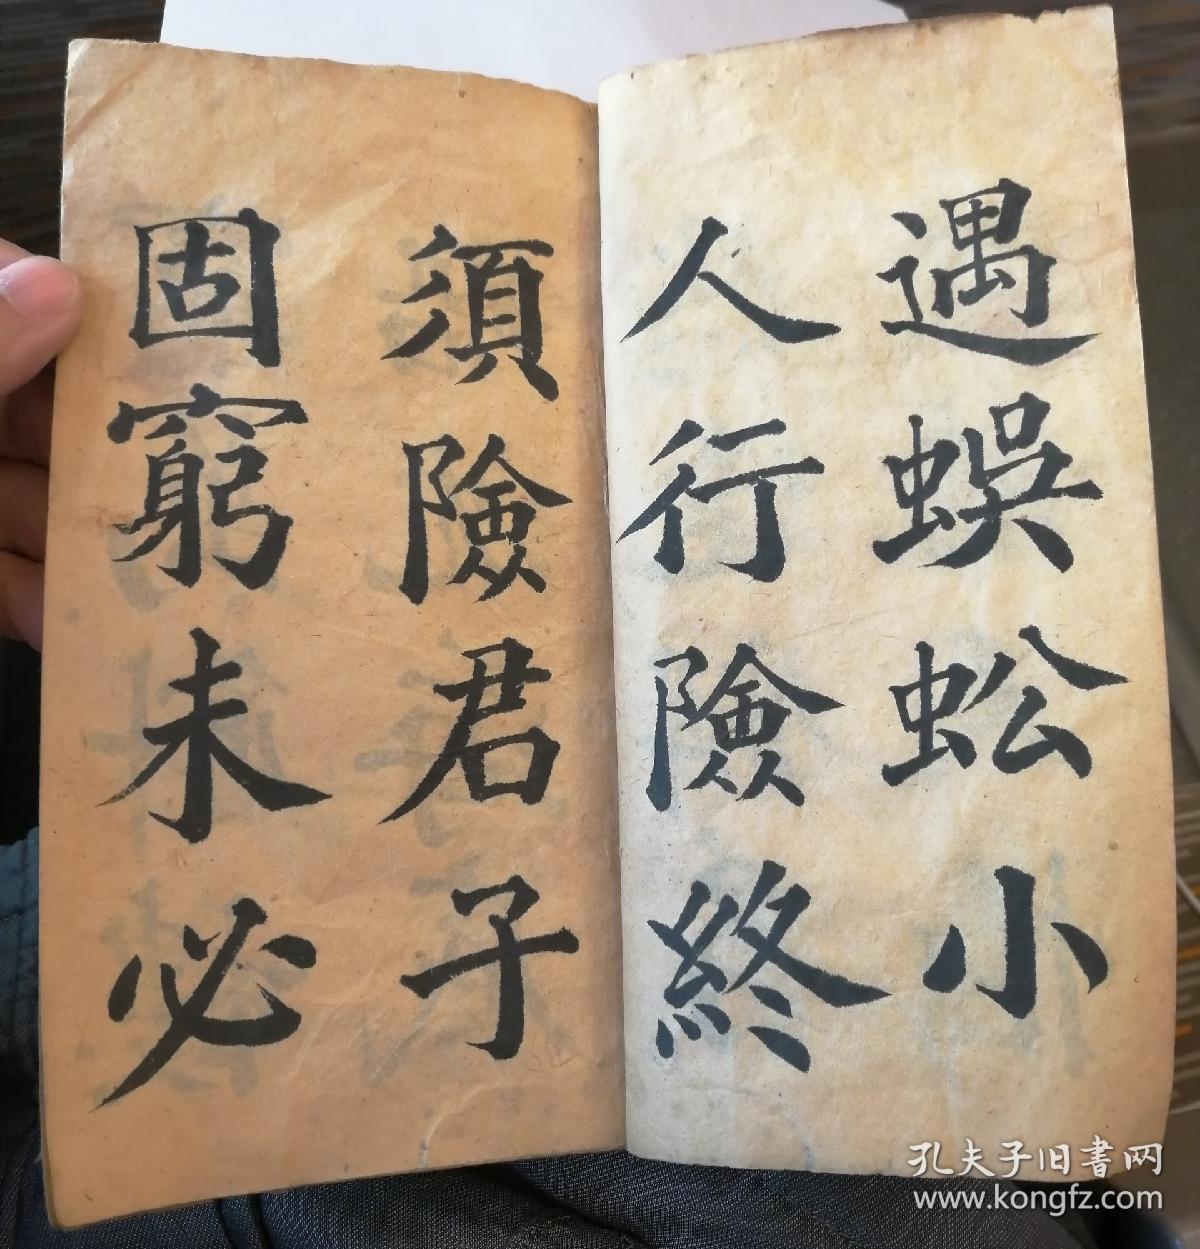 遇蜈蚣小
人行險終
須險君子
固窮未必
孔夫子旧書网
www.kongfz.com